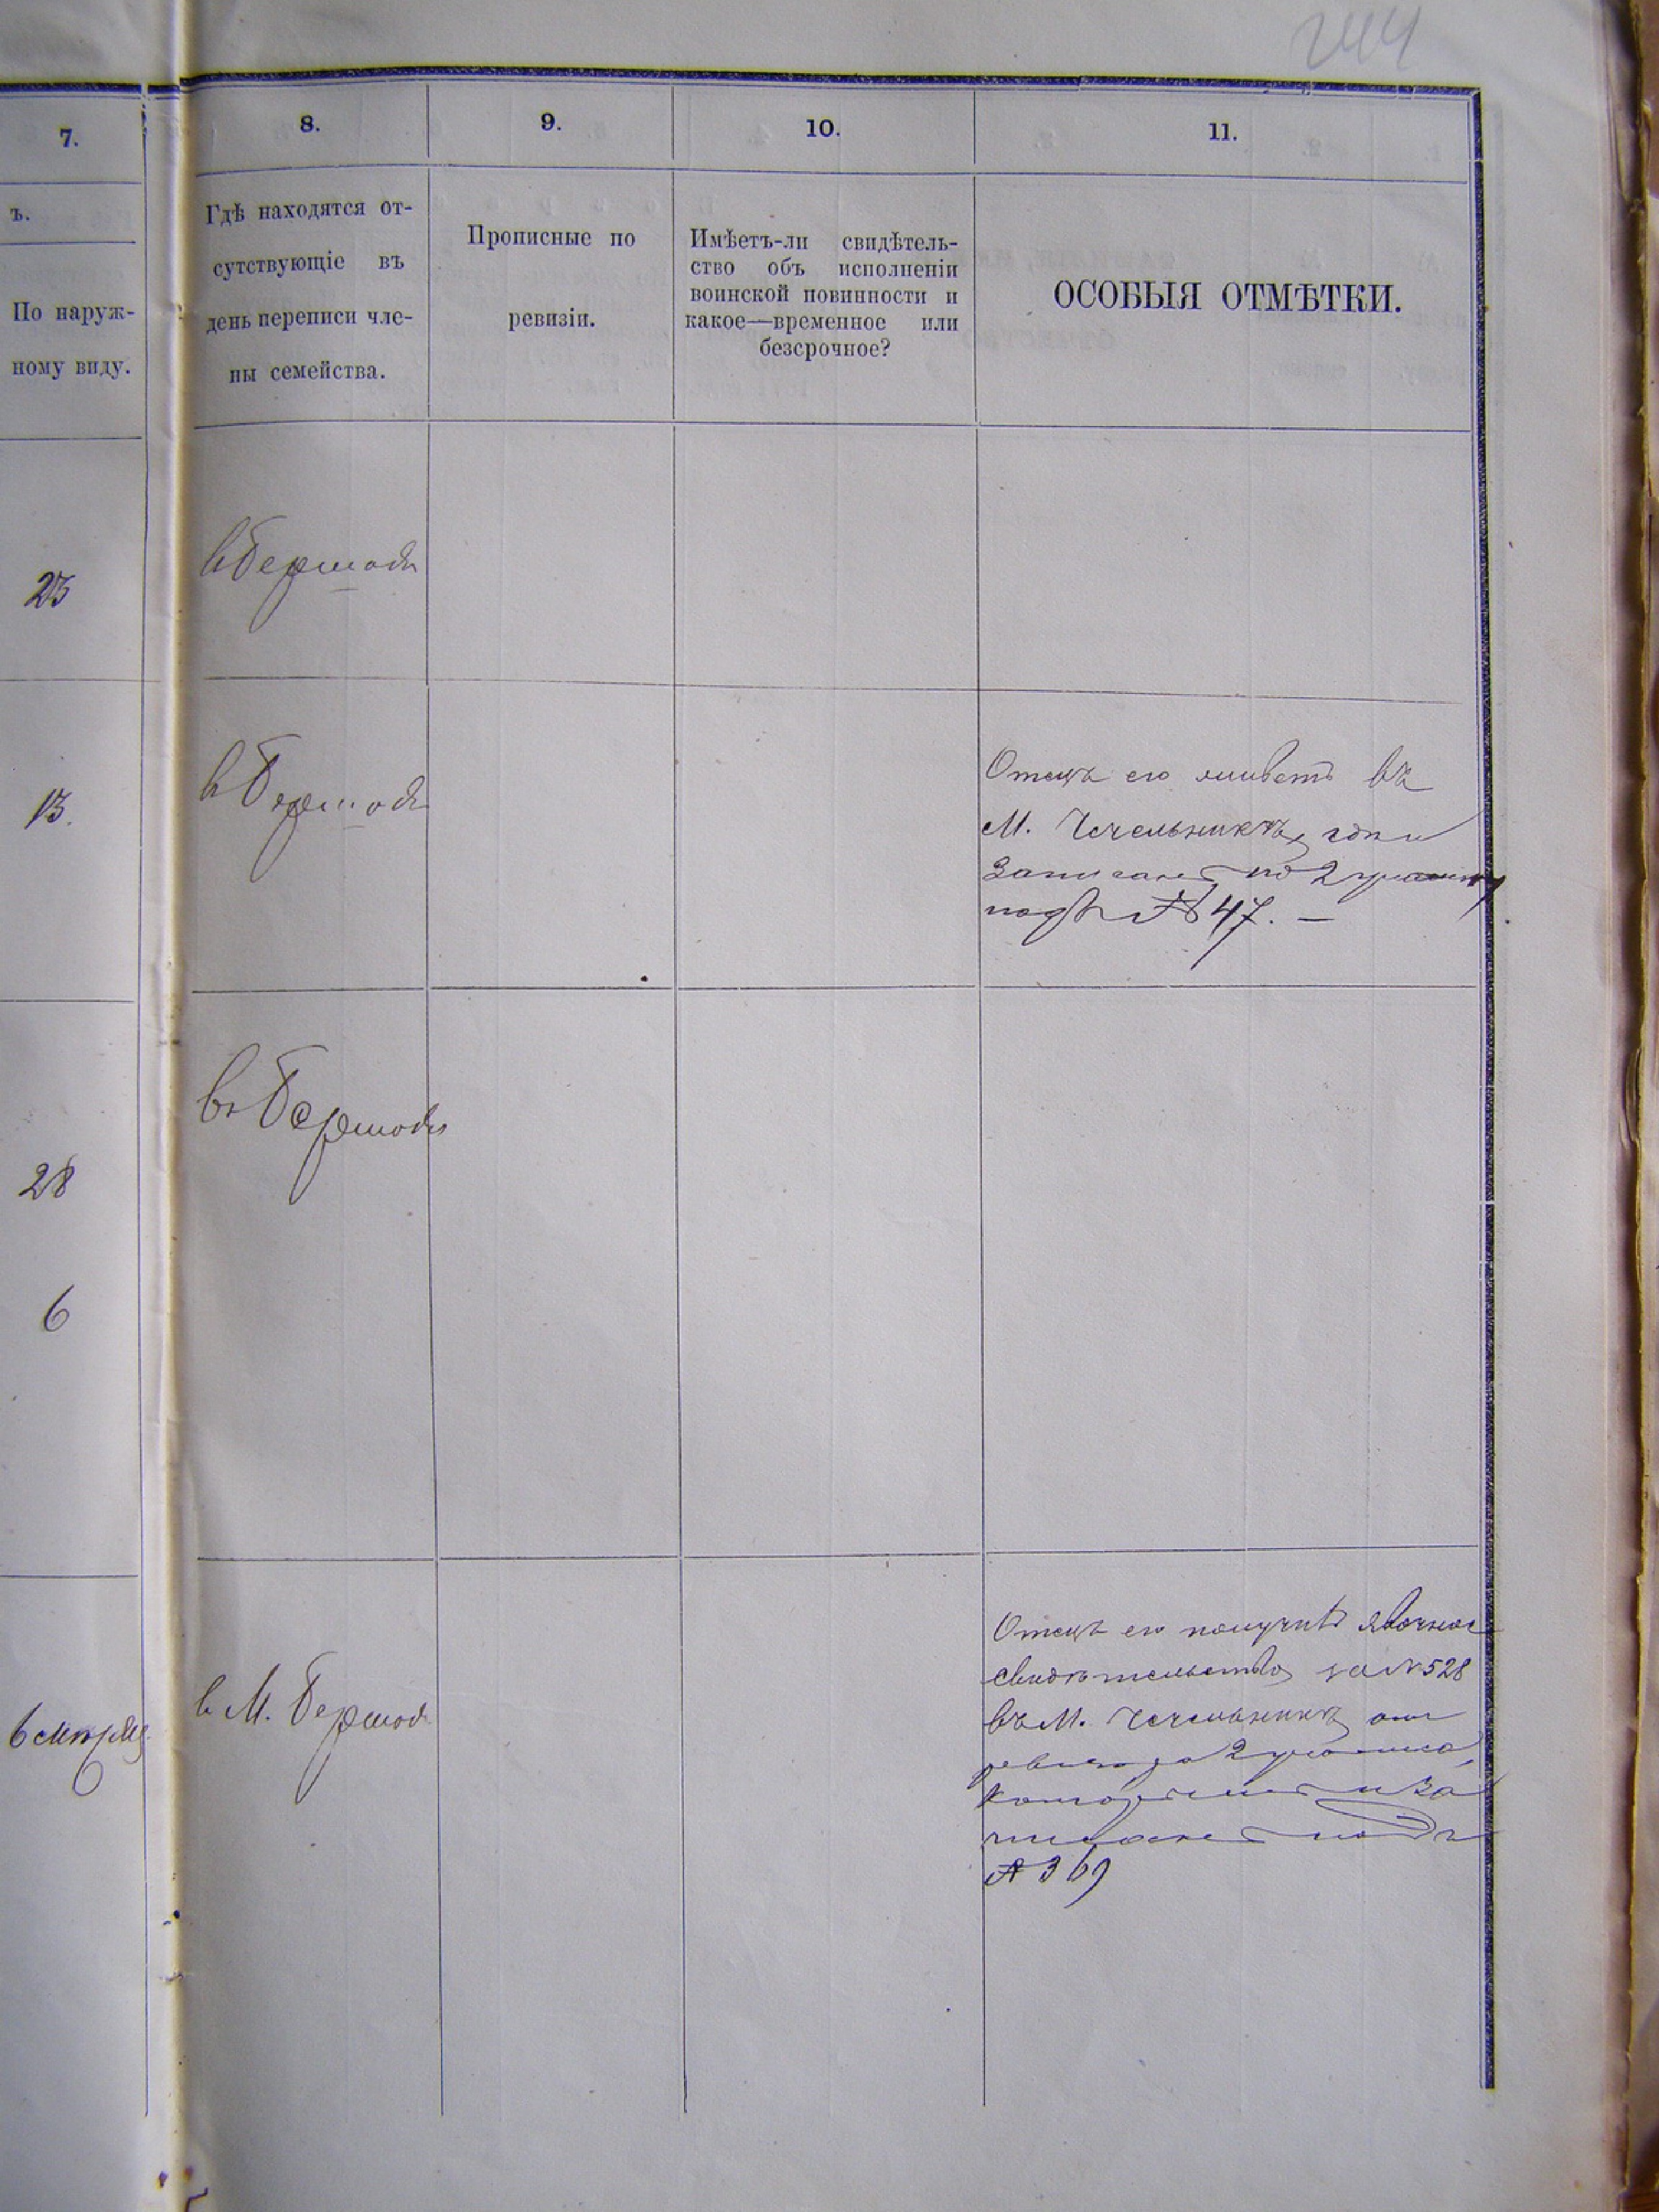 244
7.
8.
9.
10.
11.
ъ.
По наруж-
ному виду.
Гдѣ находятся от-
сутствующіе въ
день переписи чле-
ны семейства.
Прописные по
ревизіи.
Имѣетъ-ли свидѣтель-
ство объ исполненіи
воинской повинности и
какое—временное или
безсрочное?
ОСОБЫЯ ОТМѢТКИ.
23
в Бершади
13.
в Бершади
Отецъ его живетъ въ
М. Чечельникѣ, гдѣ и
записанъ по 2 участку
подъ № 47. —
28
въ Бершади
6
6 месяц
в М. Бершади
Отецъ его получилъ явочное
свидѣтельство за № 528
въ М. Чечельникѣ
2 участка,
и за
писанъ подъ
№ 369